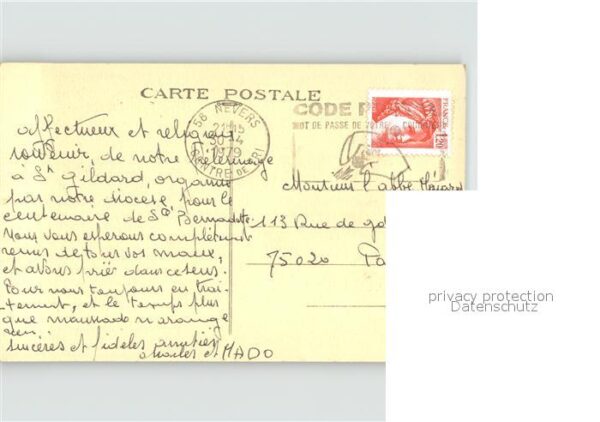 CARTE POSTALE
58 NEVERS
30-4
1979
CENTRE DE TRI
CODE
MOT DE PASSE DE
1,20
affectueux et religieux
souvenir, de notre Pèlerinage
à St Gildard, organisé
par notre diocèse, pour le
centenaire de Ste Bernadette.
Nous vous espérons complètement
remis de tous vos maux,
et avons prié dans ce sens.
Pour nous toujours en trai-
tement, et le temps plus
que maussade n'arrange
rien.
sincères et fidèles amitiés
et MADO
Monsieur l'abbé
113 Rue de
75020 Pa
privacy protection
Datenschutz